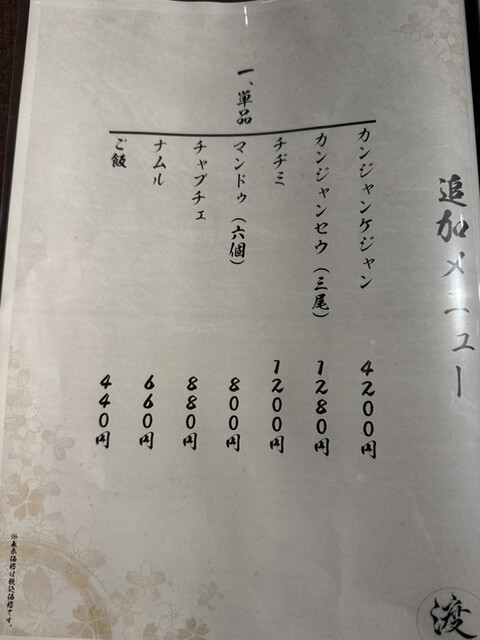 追加メニュー
一、単品
カンジャンケジャン 4200円
カンジャンセウ（三尾） 1280円
チヂミ 1200円
マンドゥ（六個） 800円
チャプチェ 880円
ナムル 660円
ご飯 440円
※表示価格は税込価格です。
渡